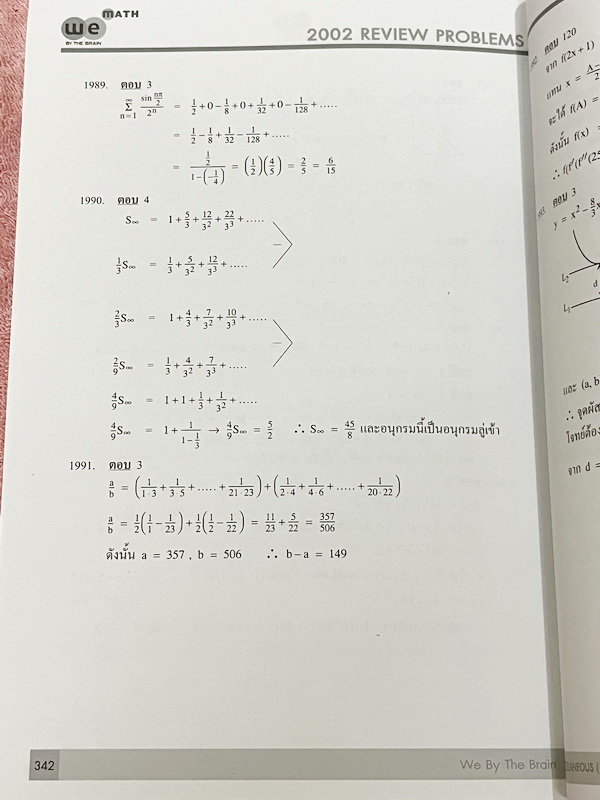 we MATH
BY THE BRAIN
2002 REVIEW PROBLEMS
1989. ตอบ 3
∞Σn=1 (sin(nπ/2))/2ⁿ = 1/2 + 0 − 1/8 + 0 + 1/32 + 0 − 1/128 + .....
= 1/2 − 1/8 + 1/32 − 1/128 + .....
= (1/2)/(1−(−1/4)) = (1/2)(4/5) = 2/5 = 6/15
1990. ตอบ 4
S∞ = 1 + 5/3 + 12/3² + 22/3³ + .....
1/3 S∞ = 1/3 + 5/3² + 12/3³ + .....
2/3 S∞ = 1 + 4/3 + 7/3² + 10/3³ + .....
2/9 S∞ = 1/3 + 4/3² + 7/3³ + .....
4/9 S∞ = 1 + 1 + 1/3 + 1/3² + .....
4/9 S∞ = 1 + 1/(1−1/3) → 4/9 S∞ = 5/2 ∴ S∞ = 45/8 และอนุกรมนี้เป็นอนุกรมลู่เข้า
1991. ตอบ 3
a/b = (1/(1·3) + 1/(3·5) + ..... + 1/(21·23)) + (1/(2·4) + 1/(4·6) + ..... + 1/(20·22))
a/b = 1/2(1/1 − 1/23) + 1/2(1/2 − 1/22) = 11/23 + 5/22 = 357/506
ดังนั้น a = 357 , b = 506 ∴ b−a = 149
342
We By The Brain
ตอบ 120
จาก f(2x + 1)
แทน x =
จะได้ f(A) =
ดังนั้น f(x) =
∴ f(f′(f″(25
ตอบ 3
y = x² − 8/3x
L₂
d
L₁
และ (a, b
∴ จุดสัมผัส
โจทย์ต้อง
จาก d =